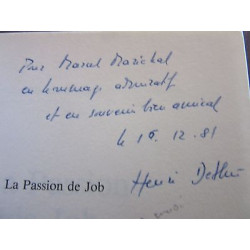 Pour Marcel Maréchal
en hommage admiratif
et en souvenir bien amical
le 16. 12. 81
La Passion de Job
Henri